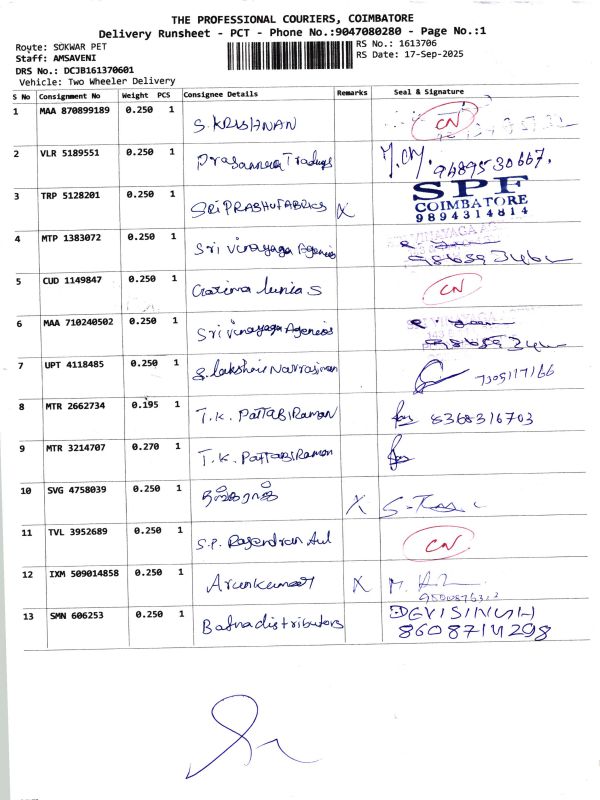 THE PROFESSIONAL COURIERS, COIMBATORE
Delivery Runsheet - PCT - Phone No.:9047080280 - Page No.:1
Route: SOKWAR PET
RS No.: 1613706
Staff: AMSAVENI
RS Date: 17-Sep-2025
DRS No.: DCJB161370601
Vehicle: Two Wheeler Delivery
S No Consignment No Weight PCS Consignee Details Remarks Seal & Signature
1 MAA 870899189 0.250 1 S.KRISHNAN CN
2 VLR 5189551 0.250 1 Prasanna Tradings 9489530667.
3 TRP 5128201 0.250 1 SRI PRABHU FABRICS X SPF
COIMBATORE
9894314814
4 MTP 1383072 0.250 1 Sri Vinayaga Agencies
5 CUD 1149847 0.250 1 CN
6 MAA 710240502 0.250 1 Sri Vinayaga Agencies
7 UPT 4118485 0.250 1 7305117166
8 MTR 2662734 0.195 1 T.K. PATTABIRaman 8368316703
9 MTR 3214707 0.270 1 T.K. PATTABIRaman
10 SVG 4758039 0.250 1 X
11 TVL 3952689 0.250 1 S.P. Rajendran CN
12 IXM 509014858 0.250 1 Arunkumar X
13 SMN 606253 0.250 1 Bafna distributors DEVISINGH
8608714298